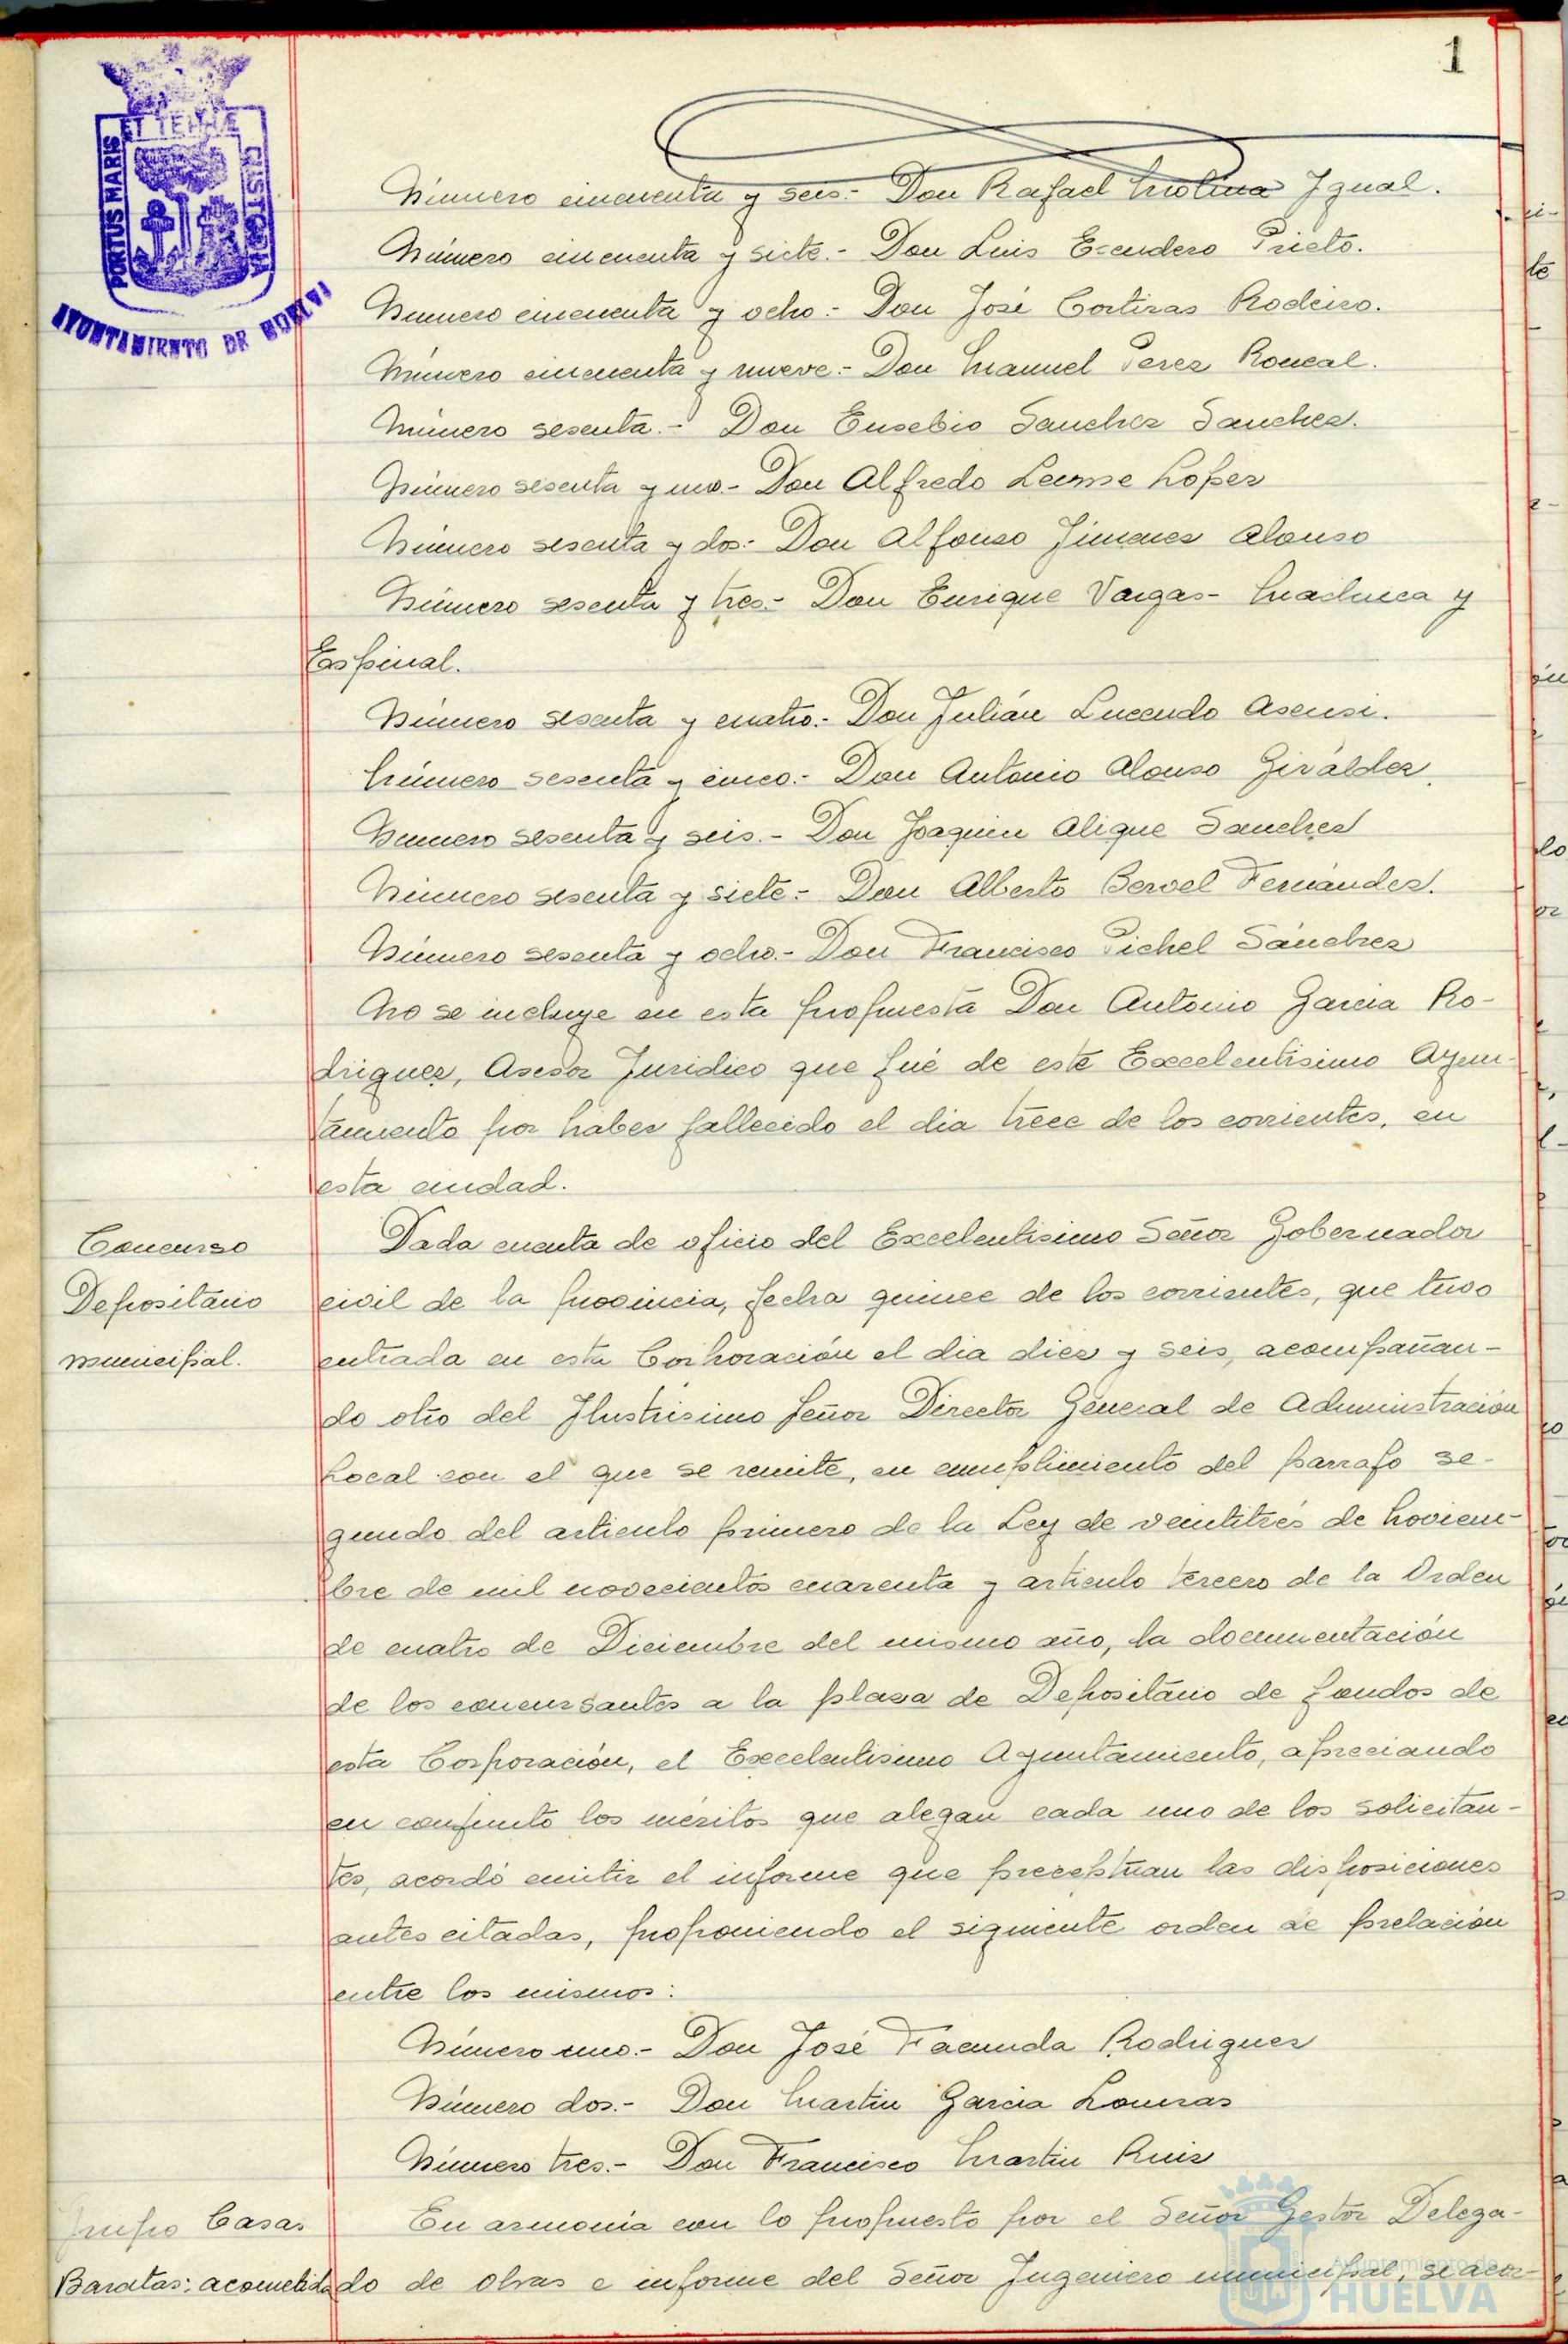 1
PORTUS MARIS
ET TERRÆ
CUSTODIA
AYUNTAMIENTO DE HUELVA
Número cincuenta y seis.- Don Rafael Molina Igual.
Número cincuenta y siete.- Don Luis Escudero Prieto.
Numero cincuenta y ocho.- Don José Cortizas Rodeiro.
Número cincuenta y nueve.- Don Manuel Perez Roncal.
Número sesenta.- Don Eusebio Sanchez Sanchez.
Número sesenta y uno.- Don Alfredo Leeme Lopez
Número sesenta y dos.- Don Alfonso Jimenez Alonso
Número sesenta y tres.- Don Enrique Vargas-Machuca y
Espinal.
Número sesenta y cuatro.- Don Julián Lucendo Asensi.
Número sesenta y cinco.- Don Antonio Alonso Giráldez.
Numero sesenta y seis.- Don Joaquin Alique Sanchez
Número sesenta y siete.- Don Alberto Bervel Fernández.
Número sesenta y ocho.- Don Francisco Pichel Sánchez
No se incluye en esta propuesta Don Antonio Garcia Ro-
driguez, Asesor Juridico que fué de este Excelentisimo Ayun-
tamiento por haber fallecido el dia trece de los corrientes, en
esta ciudad.
Concurso
Depositario
municipal.
Dada cuenta de oficio del Excelentisimo Señor Gobernador
civil de la provincia, fecha quince de los corrientes, que tuvo
entrada en esta Corporación el dia diez y seis, acompañan-
do otro del Ilustrisimo Señor Director General de Administración
Local con el que se remite, en cumplimiento del parrafo se-
gundo del articulo primero de la Ley de veintitrés de Noviem-
bre de mil novecientos cuarenta y articulo tercero de la Orden
de cuatro de Diciembre del mismo año, la documentación
de los concursantes a la plaza de Depositario de fondos de
esta Corporación, el Excelentisimo Ayuntamiento, apreciando
en conjunto los méritos que alegan cada uno de los solicitan-
tes, acordó emitir el informe que preceptúan las disposiciones
antes citadas, proponiendo el siguiente orden de prelación
entre los mismos:
Número uno.- Don José Facunda Rodriguez
Número dos.- Don Martin Garcia Lomas
Número tres.- Don Francisco Martin Ruiz
Grupo Casas
Baratas: acometida
En armonia con lo propuesto por el Señor Gestor Delega-
do de Obras e informe del Señor Ingeniero municipal, se acor-
Ayuntamiento de
HUELVA